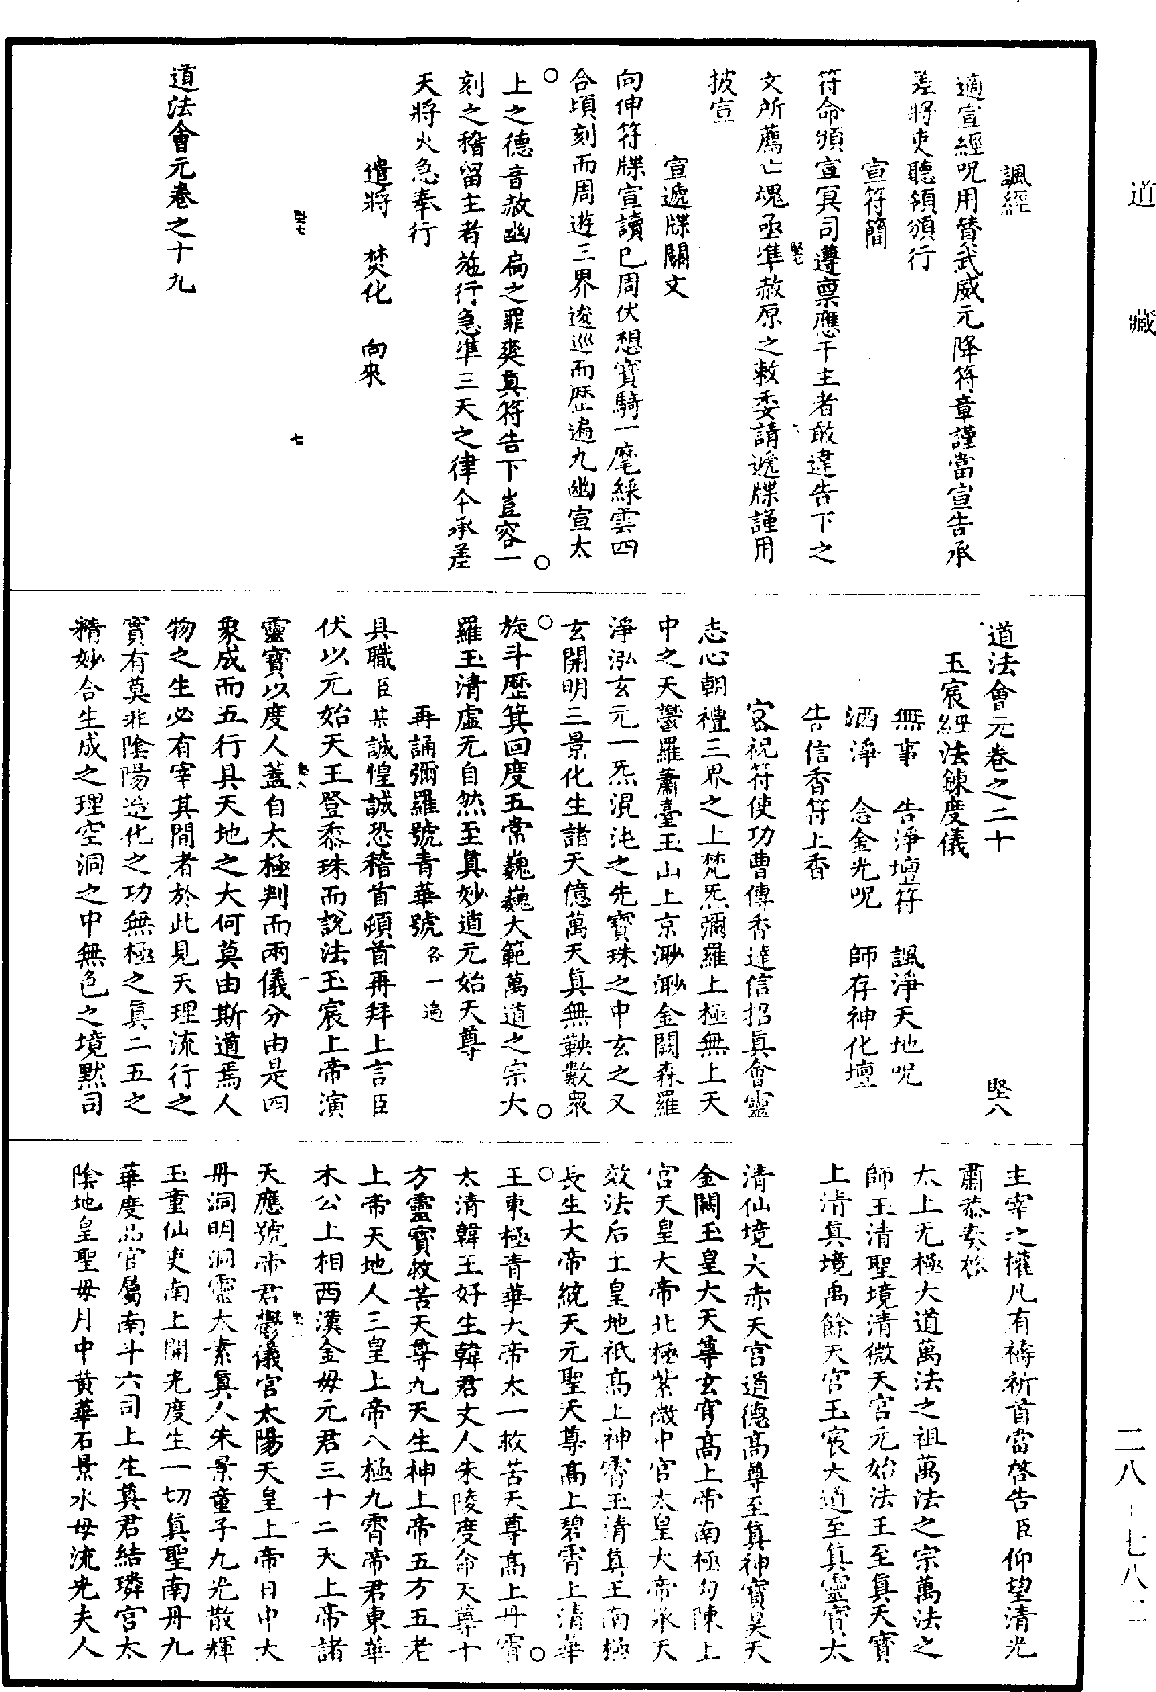 道 藏
諷經
適宣經呪用贊武威元降符章謹當宣告承
差將吏聽領頒行
宣符簡
符命頒宣冥司遵稟應干主者敢違告下之
文所薦亡魂亟準赦原之敕委請遞牒謹用
披宣
宣遞牒關文
向伸符牒宣讀已周伏想寶騎一麾綵雲四
合頃刻而周遊三界逡巡而歷遍九幽宣太
上之德音赦幽扃之罪爽真符告下豈容一
刻之稽留主者施行急準三天之律令承差
天將火急奉行
遣將 焚化 向來
七
道法會元卷之十九
道法會元卷之二十 堅八
玉宸經法鍊度儀
無事 告淨壇符 諷淨天地呪
洒淨 念金光呪 師存神化壇
告信香符上香
密祝符使功曹傳香達信招真會靈
志心朝禮三界之上梵炁彌羅上極無上天
中之天鬱羅蕭臺玉山上京渺渺金闕森羅
淨泓玄元一炁混沌之先寶珠之中玄之又
玄開明三景化生諸天億萬天真無鞅數眾
旋斗歷箕回度五常巍巍大範萬道之宗大
羅玉清虛无自然至真妙道元始天尊
再誦彌羅號青華號各一遍
具職臣某誠惶誠恐稽首頓首再拜上言臣
伏以元始天王登黍珠而說法玉宸上帝演
靈寶以度人蓋自太極判而兩儀分由是四
象成而五行具天地之大何莫由斯道焉人
物之生必有宰其間者於此見天理流行之
實有莫非陰陽造化之功無極之真二五之
精妙合生成之理空洞之中無色之境默司
主宰之權凡有禱祈首當啓告臣仰望清光
肅恭奏啟
太上无極大道萬法之祖萬法之宗萬法之
師玉清聖境清微天宮元始法王至真天寶
上清真境禹餘天宮玉宸大道至真靈寶太
清仙境大赤天宮道德高尊至真神寶昊天
金闕玉皇大天尊玄穹高上帝南極勾陳上
宮天皇大帝北極紫微中宮太皇大帝承天
效法后土皇地祇高上神霄玉清真王南極
長生大帝統天元聖天尊高上碧霄上清華
王東極青華大帝太一救苦天尊高上丹霄
太清韓王好生韓君丈人朱陵度命天尊十
方靈寶救苦天尊九天生神上帝五方五老
上帝天地人三皇上帝八極九霄帝君東華
木公上相西漢金母元君三十二天上帝諸
天應號帝君鬱儀宮太陽天皇上帝日中大
丹洞明洞靈太素真人朱景童子九光散輝
玉童仙吏南上開光度生一切真聖南丹九
華度品官屬南斗六司上生真君結璘宮太
陰地皇聖母月中黃華石景水母流光夫人
二八-七八二